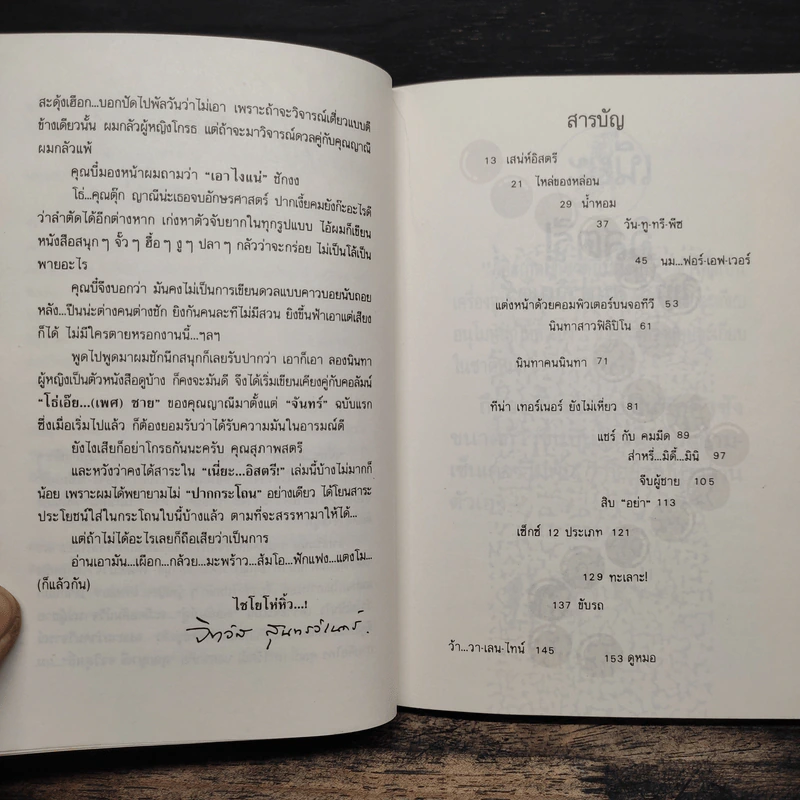 สะดุ้งเฮือก...บอกปัดไปพัลวันว่าไม่เอา เพราะถ้าจะวิจารณ์เดี่ยวแบบตี
ข้างเดียวนั้น ผมกลัวผู้หญิงโกรธ แต่ถ้าจะมาวิจารณ์ดวลคู่กับคุณญาณี
ผมกลัวแพ้
คุณบี๋มองหน้าผมถามว่า “เอาไงแน่” ชักงง
โธ่...คุณตุ๊ก ญาณีน่ะเธอจบอักษรศาสตร์ ปากเงี้ยคมยังก๊ะอะไรดี
ว่าลำตัดได้อีกต่างหาก เก่งหาตัวจับยากในทุกรูปแบบ ไอ้ผมก็เขียน
หนังสือสนุก ๆ จั๊ว ๆ ฮื้อ ๆ งู ๆ ปลา ๆ กลัวว่าจะกร่อย ไม่เป็นโล้เป็น
พายอะไร
คุณบี๋จึงบอกว่า มันคงไม่เป็นการเขียนดวลแบบคาวบอยนับถอย
หลัง...ปืนน่ะต่างคนต่างชัก ยิงกันคนละทีไม่มีสวน ยิงขึ้นฟ้าเอาแต่เสียง
ก็ได้ ไม่มีใครตายหรอกงานนี้...ฯลฯ
พูดไปพูดมาผมชักนึกสนุกก็เลยรับปากว่า เอาก็เอา ลองนินทา
ผู้หญิงเป็นตัวหนังสือดูบ้าง ก็คงจะมันดี จึงได้เริ่มเขียนเคียงคู่กับคอลัมน์
“โธ่เอ๊ย...(เพศ) ชาย” ของคุณญาณีมาตั้งแต่ “จันทร์” ฉบับแรก
ซึ่งเมื่อเริ่มไปแล้ว ก็ต้องยอมรับว่าได้รับความมันในอารมณ์ดี
ยังไงเสียก็อย่าโกรธกันนะครับ คุณสุภาพสตรี
และหวังว่าคงได้สาระใน “เนี่ยะ...อิสตรี!” เล่มนี้บ้างไม่มากก็
น้อย เพราะผมได้พยายามไม่ “ปากกระโถน” อย่างเดียว ได้โยนสาระ
ประโยชน์ใส่ในกระโถนใบนี้บ้างแล้ว ตามที่จะสรรหามาให้ได้...
แต่ถ้าไม่ได้อะไรเลยก็ถือเสียว่าเป็นการ
อ่านเอามัน...เผือก...กล้วย...มะพร้าว...ส้มโอ...ฟักแฟง...แตงโม...
(ก็แล้วกัน)
ไชโยโห่หิ้ว...!
สารบัญ
13 เสน่ห์อิสตรี
21 ไหล่ของหล่อน
29 น้ำหอม
37 วัน-ทู-ทรี-พีซ
45 นม...ฟอร์-เอฟ-เวอร์
แต่งหน้าด้วยคอมพิวเตอร์บนจอทีวี 53
นินทาสาวฟิลิปิโน 61
นินทาคนนินทา 71
ทีน่า เทอร์เนอร์ ยังไม่เหี่ยว 81
แชร์ กับ คมมีด 89
ส่าหรี่...มิดี้...มินิ 97
จีบผู้ชาย 105
สิบ “อย่า” 113
เซ็กซ์ 12 ประเภท 121
129 ทะเลาะ!
137 ขับรถ
ว้า...วา-เลน-ไทน์ 145
153 ดูหมอ